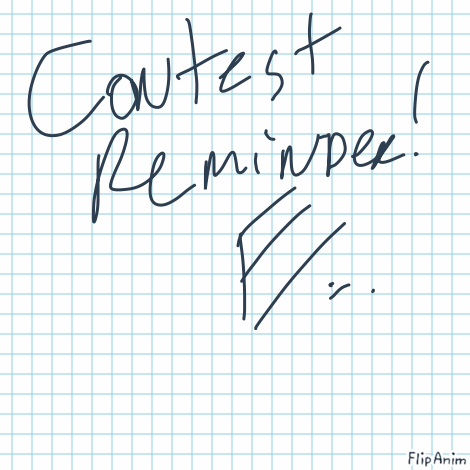 Contest
Reminder!
FlipAnim